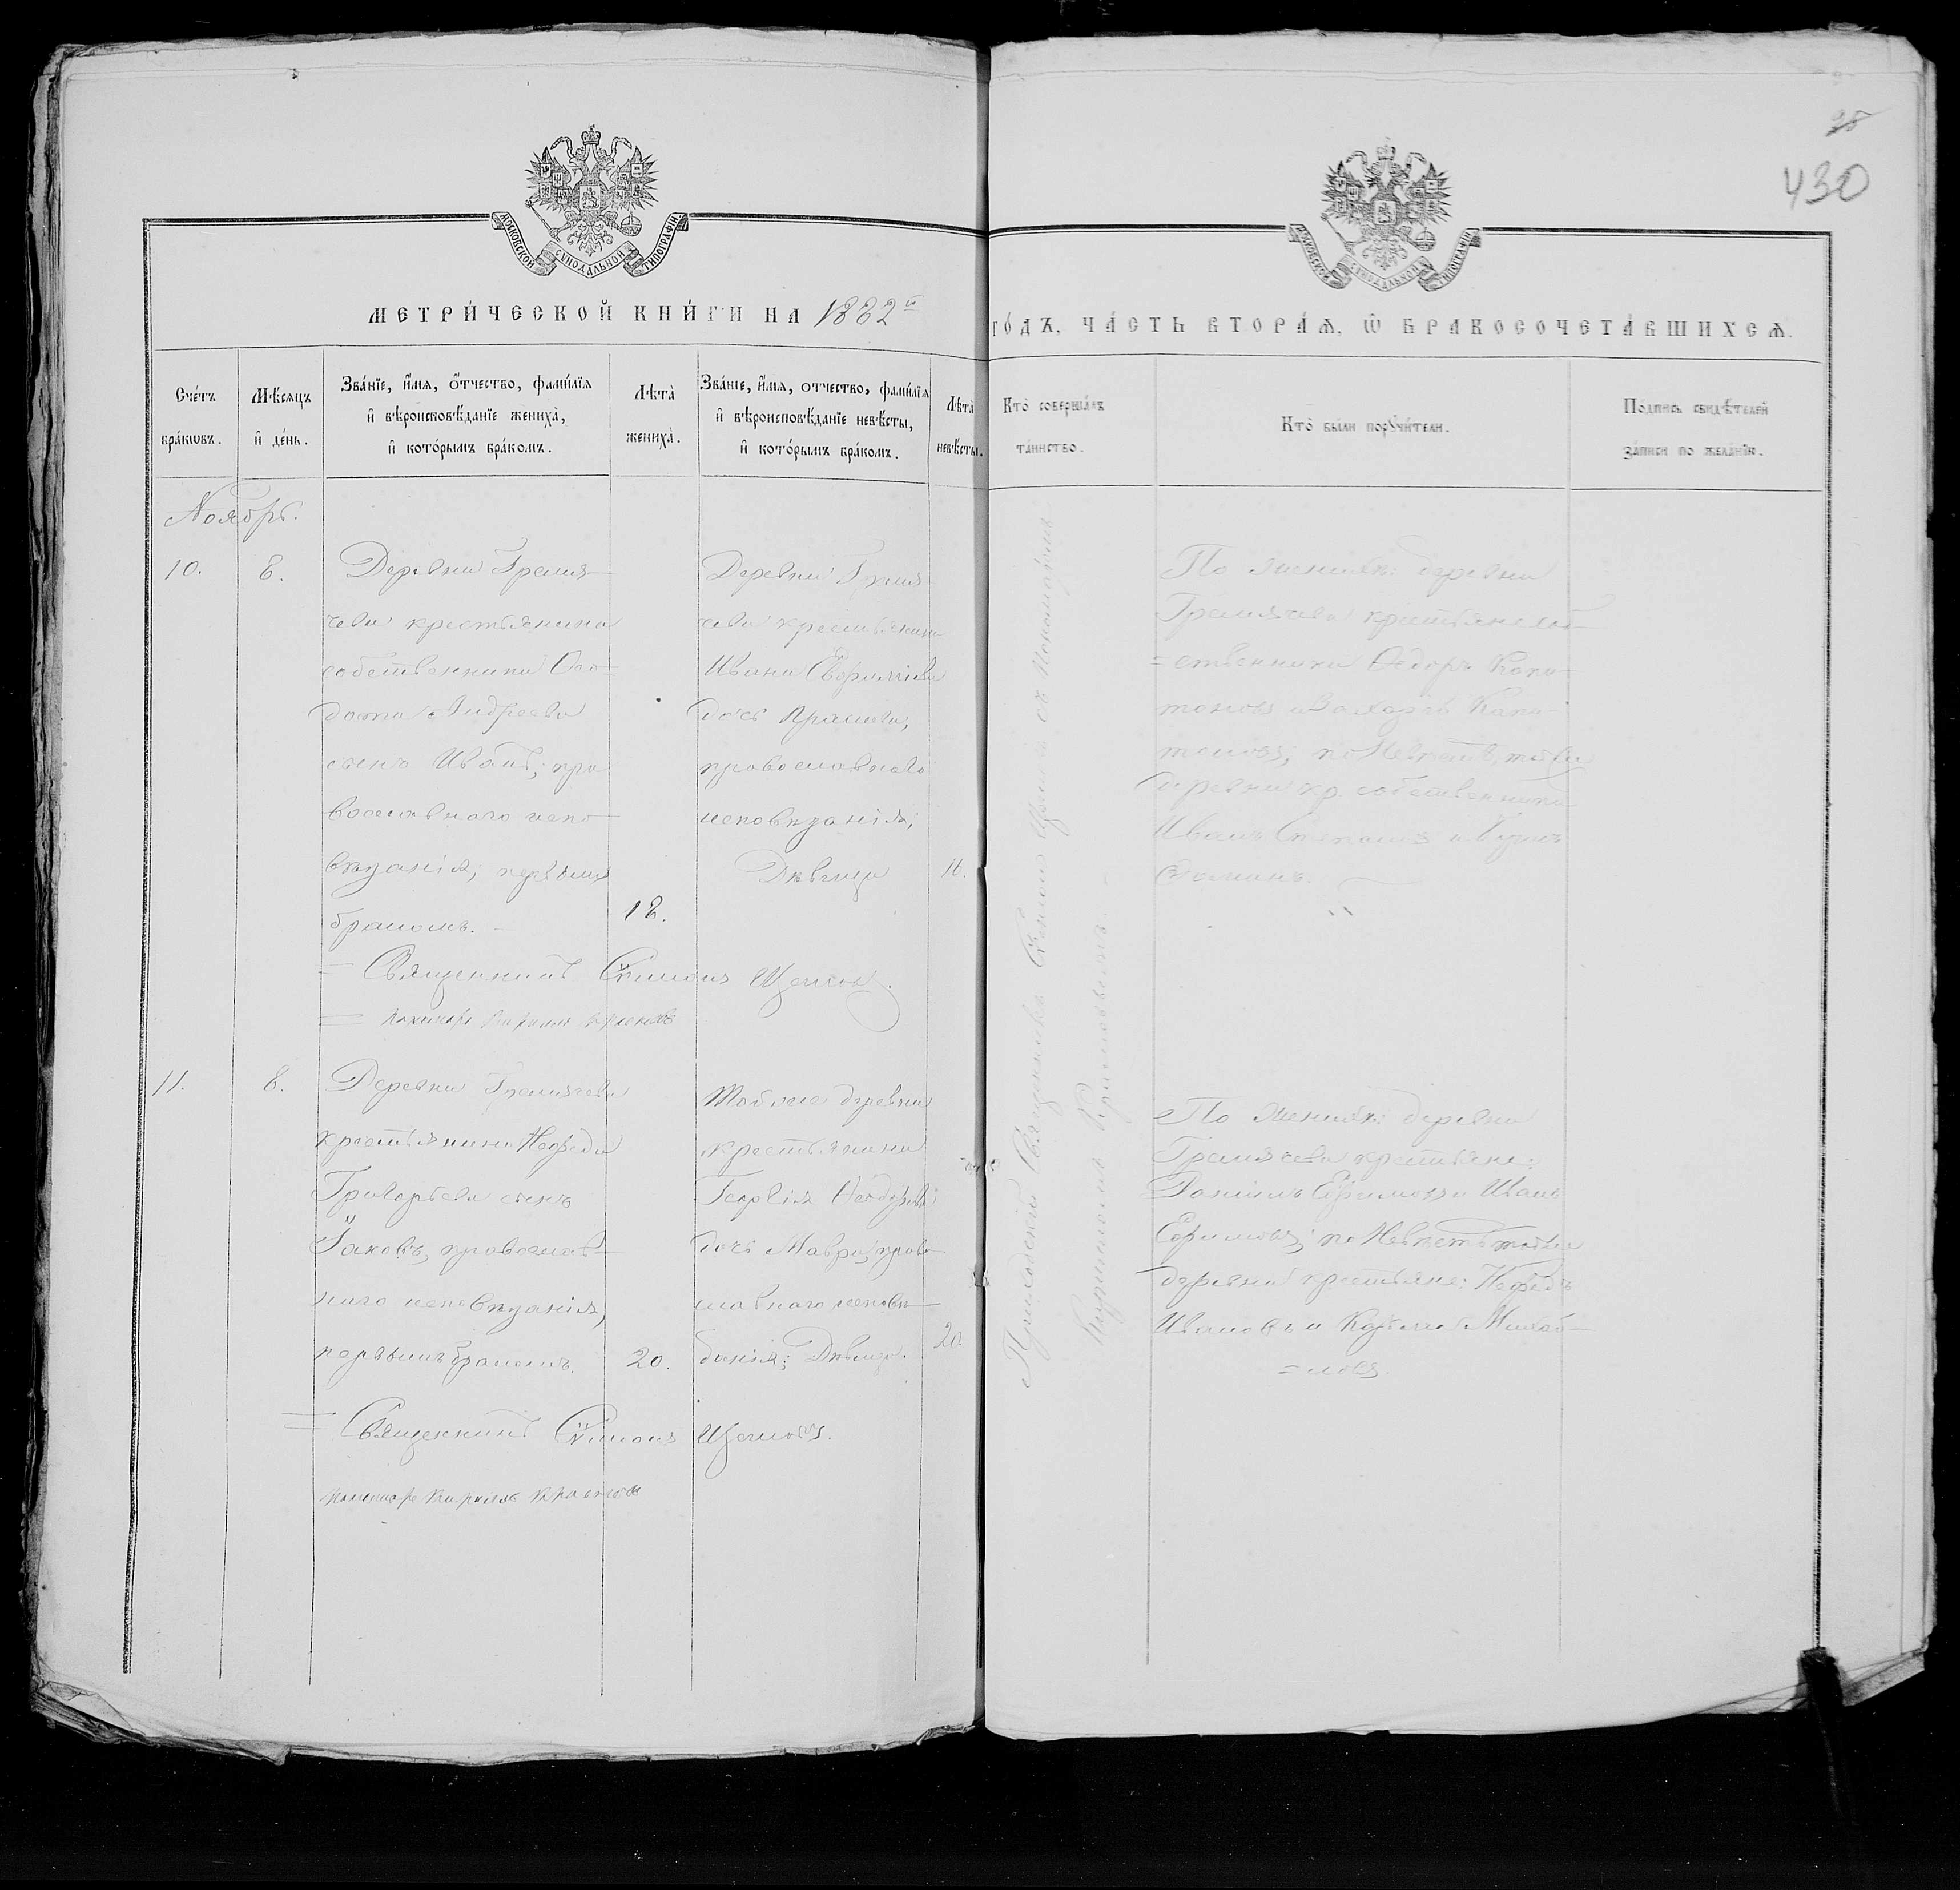 98
430
МОСКОВСКОЙ СѴНОДАЛЬНОЙ ТИПОГРАФІИ
МОСКОВСКОЙ СѴНОДАЛЬНОЙ ТИПОГРАФІИ
МЕТРИ́ЧЕСКОЙ КНИ́ГИ НА 1882й
ГО́ДЪ, ЧА́СТЬ ВТОРА́Ѧ, Ѡ БРАКОСОЧЕТА́ВШИХСѦ.
Сче́тъ
бра́кѡвъ.
Мѣ́сяцъ
и де́нь.
Зва́нїе, и́мѧ, о́тчество, фами́лїѧ
и вѣроисповѣ́данїе жениха̀,
и кото́рымъ бра́комъ.
Лѣта̀
жениха̀.
Зва́нїе, и́мѧ, отчество, фами́лїѧ
и вѣроисповѣ́данїе невѣ́сты,
и кото́рымъ бра́комъ.
Лѣта̀
невѣ́сты.
Кто̀ соверша́лъ
та́инство.
Кто̀ бы́ли порꙋчи́тели.
По́дпись свидѣ́телей
за́писи по жела́нїю.
Ноябрь.
10.
8.
Деревни Гремя-
чева крестьянина
собственника Ѳео-
дота Андреева
сынъ Иванъ, пра
вославнаго испо-
вѣданія; первымъ
бракомъ.
18.
Деревни Гремя
чева крестьянина
Ивана Евфиміева
дочь
православнаго
исповѣданія;
Дѣвица
16.
= Священникъ Сѵмеонъ
=
По женихѣ: деревни
Гремячева крестьяне соб-
=ственники Ѳедоръ Капи-
тоновъ и Захаръ Капи-
тоновъ; по Невѣстѣ, той же
деревни кр. собственники
Иванъ Степановъ и
Приходскій Священникъ Сѵмеонъ съ Псаломщикомъ
Кирилломъ
11.
8.
Деревни Гремячева
крестьянина Нефеда
Григорьева сынъ
Іаковъ, православ-
наго исповѣданія,
первымъ бракомъ.
20.
Той же деревни
крестьянина
Георгія Ѳеодорова
дочь Мавра, право-
славнаго исповѣ-
данія; Дѣвица.
20.
= Священникъ Сѵмеонъ
Кириллъ
По женихѣ: деревни
Гремячева крестьяне:
Даніилъ Ефимовъ и Иванъ
Ефимовъ; по Невѣстѣ той же
деревни крестьяне: Нефедъ
Ивановъ и Михай-
=ловъ.